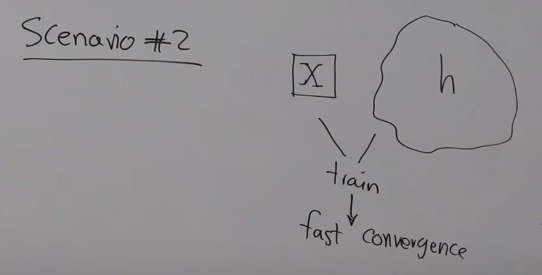 Scenario #2
X
h
train
fast convergence